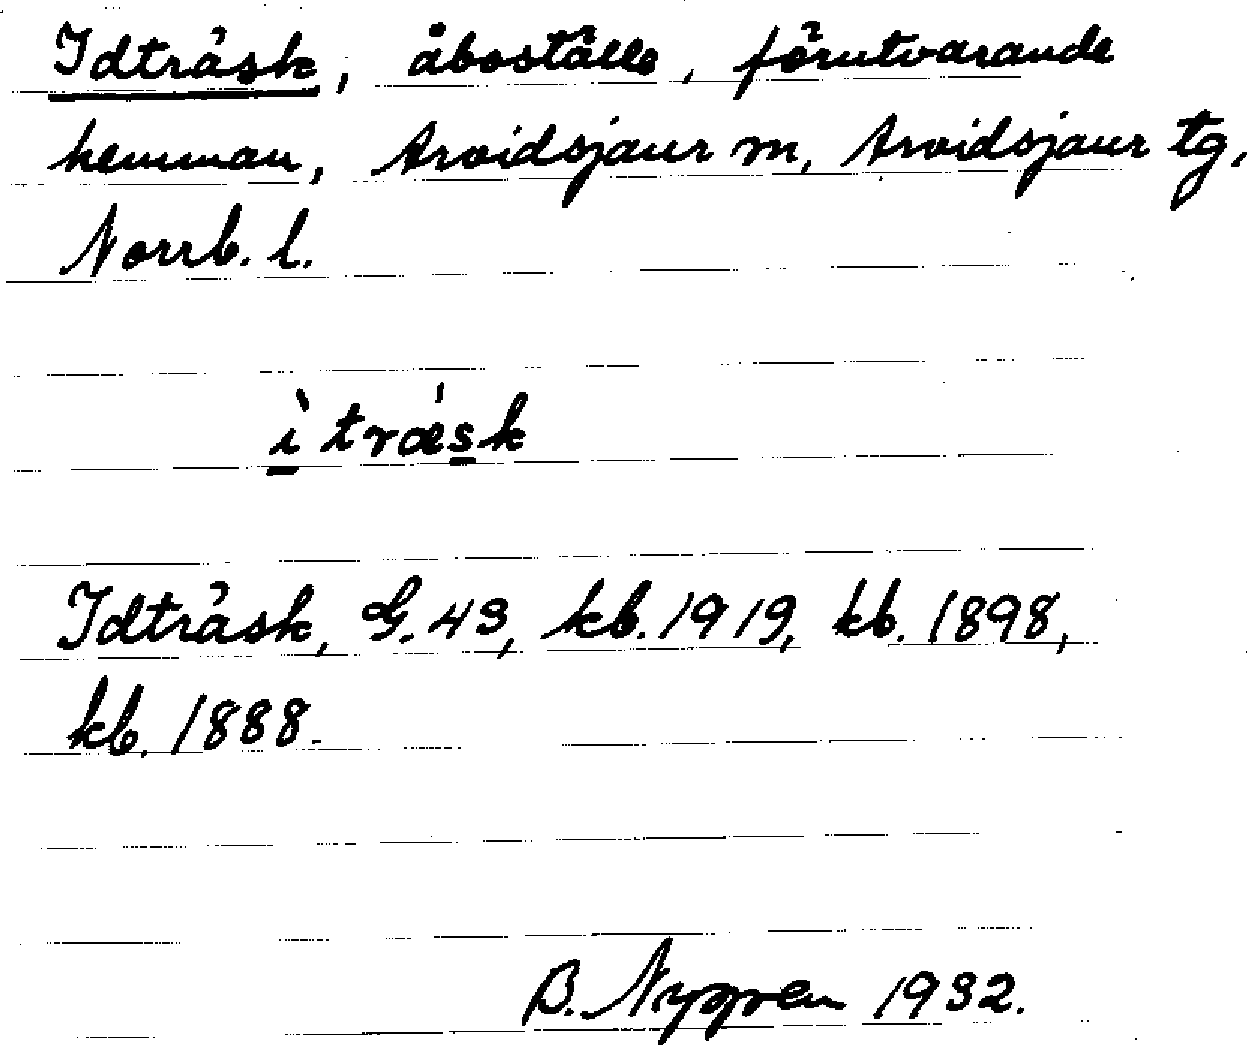 Idträsk, åboställe, förutvarande
hemman, Arvidsjaur sn, Arvidsjaur tg,
Norrb. l.
ì træ´sk
Idträsk, G. 43, kb. 1919, kb. 1898,
kb. 1888.
B. Nygren 1932.